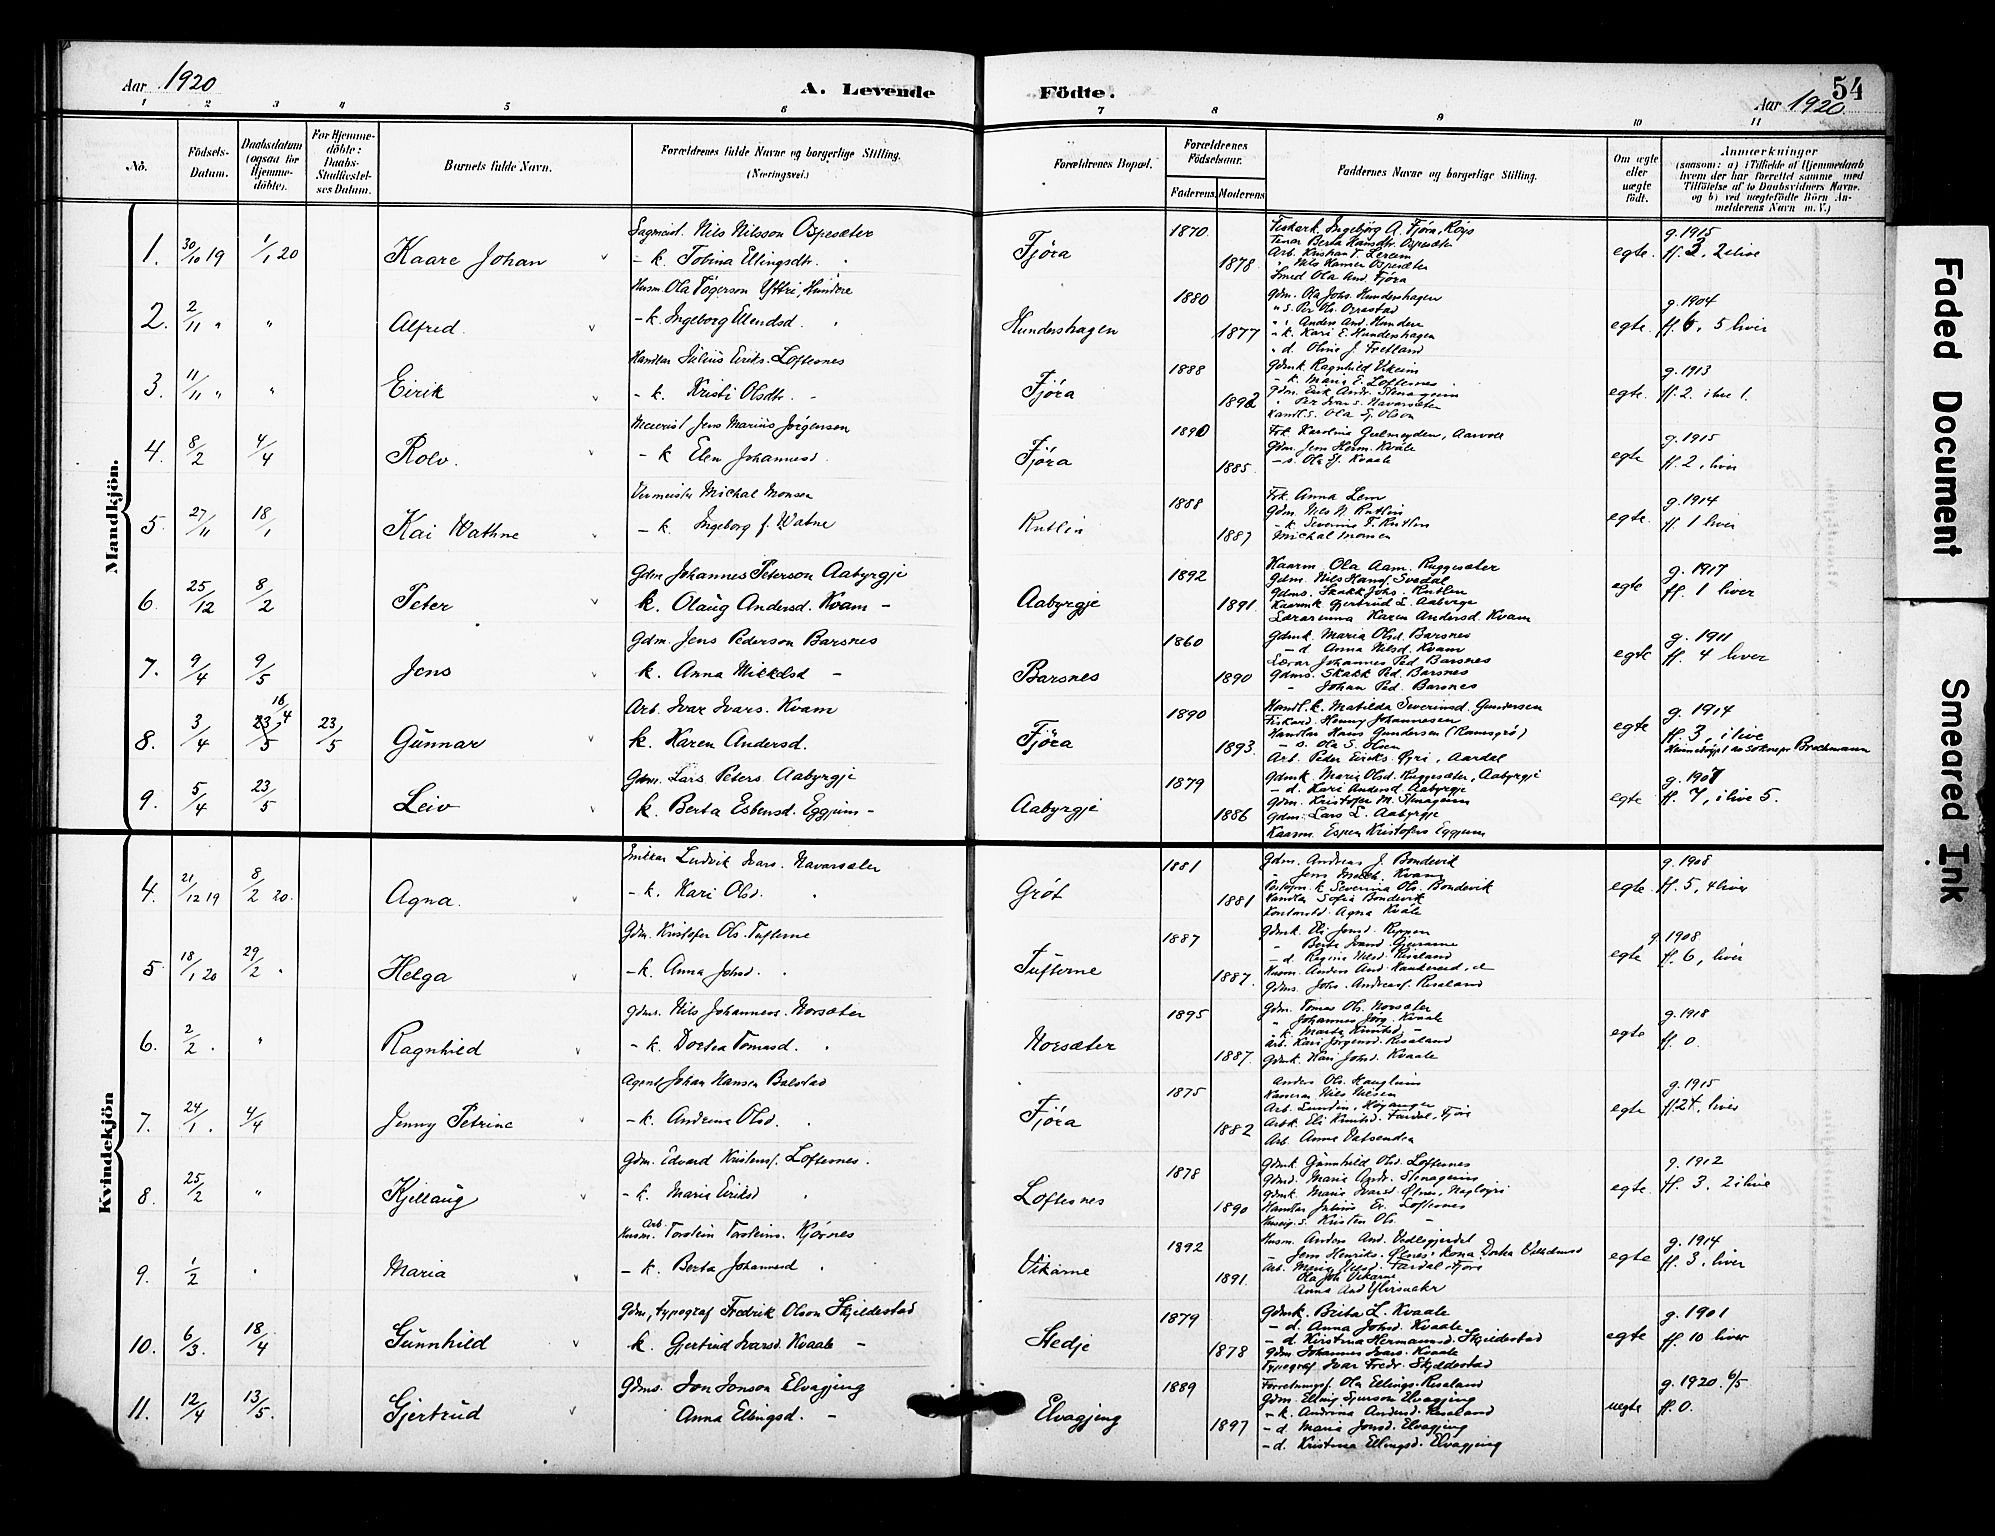 Aar 1920
A. Levende Födte.
54
Aar 1920
1 2 3 4 5 6 7 8 9 10 11
No.
Födsels-Datum.
Daabsdatum (ogsaa for Hjemmedöbte).
For Hjemmedöbte: Daabs-Stadfæstelses Datum.
Barnets fulde Navn.
Forældrenes fulde Navne og borgerlige Stilling. (Næringsvei.)
Forældrenes Bopæl.
Forældrenes Födselsaar.
Faderens. Moderens
Faddernes Navne og borgerlige Stilling.
Om ægte eller uægte født.
Anmærkninger
(saasom: a) i Tilfælde af Hjemmedaab
hvem der har forrettet samme med
Tilföielse af to Daabsvidners Navne.
og b) ved uægtefödte Börn An-
melderens Navn m. V.)
Mandkjön.
1. 30/10 19 1/1 20 Kaare Johan
Nils Nilsson Ospesæter
- k. Tobina Ellingsdtr. "
Fjöra 1870. 1878
Fiskark. Ingebjörg A. Fjöra, Röys
Berta Hansdtr. Ospesæter
Arb. Kristian T. Lerum
" Nils Hansen Ospesæter
Smed Ola And. Fjöra
egte. g. 1915 ff. 3, 2 ilive
2. 2/11 " " Alfred.
Husm. Ola Tögerson Yttri, Hundere
- k. Ingeborg Ellendsd. "
Hundershagen 1880 1877
Gdm. Ola Johs. Hundershagen
" s. Per Ols. Orrestad
" Anders And. Hundere
" k. Kari E. Hundershagen
" d. Oline J. Fretland
egte. g. 1904 ff. 6, 5 liver
3. 11/11 " " Eirik
Handlar Julius Eiriks. Loftesnes
- k. Kristi Olsdtr. -
Fjöra 1888 1892
Gdmk. Ragnhild Vikum
- k. Marie E. Loftesnes
Gdm. Eirik Andr. Stenagjum
" Per Ivars. Navarsæter
Handl s. Ola Ej. Olson
egte. g. 1913 ff. 2. ilive 1.
4. 8/2 4/4 Rolv.
Meierist Jens Marius Jörgensen
- k Elen Johannesd.
Fjöra 1890 1885.
Frk. Karolina Gulmeyden, Aarvoll
Gdm. Jens Herm. Kvåle
- s. Ola Ej. Kvaale
egte g. 1915 ff. 2, liver
5. 27/11 18/1 Kai Wathne
Michal Monsen
- k. Ingeborg f. Watne
Kutlin 1888 1887
Frk. Anna Lem
Gdm. Nils N. Kutlin
- k. Severine T. Kutlin
Michal Monsen
egte. g. 1914 ff. 1 liver
6. 25/12 8/2 Peter
Gdm Johannes Peterson Aabyrgje
k. Olaug Andersd. Kvam -
Aabyrgje 1892 1891.
Kaarm. Ola Aam. Ruggesæter
Gdm. Nils Hansf. Svedal
Gdms. Skakk Johs. Kutlin
Kaarmk Gjertrud L. Aaberge
Lærarinna Karen Andersd. Kvam
egte g. 1917 ff. 1 liver
7. 9/4 9/5 Jens
Gdm. Jens Pederson Barsnes
k. Anna Mikkelsd -
Barsnes 1860 1890
Gdmk. Maria Olsd. Barsnes
- d. Anna Nilsd. Kvam
Lærar Johannes Ped Barsnes
Gdms. Skakk Ped. Barsnes
" Johan Ped. Barsnes
egte g. 1911 ff. 4 liver
8. 3/4 23/5 16/4 23/5 Gunnar
Arb. Ivar Ivars. Kvam
k. Karen Andersd.
Fjöra 1890 1893.
Handl. k. Matilda Severinsd. Gundersen
Fiskard. Henny Johannesen
Handlar Hans Gundersen (Ramsgrö)
- s. Ola S. Hven
Arb. Peder Eiriks. Öyri, Aardal
egte g. 1914 ff. 3, ilive
Heimedöypt av sokneprest Brochmann
9. 5/4 23/5 Leiv
Gdm. Lars Peters. Aabyrgje
k. Berta Esbensd. Eggjum -
Aabyrgje 1879 1886
Gdmk. Marie Olsd. Ruggesæter, Aabyrgje
- d. Kari Andersd Aabyrgje
Gdm. Kristofer M. Stenagjum
Gdm. Lars L. Aabyrgje
Kaarm. Espen Kristofers Eggjum
egte g. 1907 ff. 7, ilive 5.
Kvindekjön
4. 21/12 19 8/2 20. Agna.
Ludvik Ivars. Navarsæter
- k. Kari Olsd. "
Gröt 1881 1881
Gdm. Andreas J. Bondevik
" Jens Mich. Kvam
k Severina Ols. Bondevik
Handlar Sofia Bondevik
Kontorist. Agna Kvåle
egte. g. 1908 ff. 5, 4 liver
5. 18/1 20 29/2 " Helga
Gdm. Kristofer Ols. Tufterne
- k. Anna Johsd. "
Tufterne 1887 1887.
Gdmk. Eli Jonsd. Rippen
" Berte Ivarsd.
- d. Regine Nilsd. Risaland
Husm. Anders And.
Gdms. Johs. Andreasf. Risaland
egte g. 1908 ff. 6, liver
6. 2/2 . " Ragnhild
Gdms. Nils Johannes. Norsæter
- k. Dortea Tomasd. "
Norsæter 1895 1887.
Gdm. Tomas Ols. Norsæter
" Johannes Jörg. Kvaale
" k. Marta Knutsd. -
Arb. Kari Jörgensd. Risaland
Gdmk. Kari Johsd. Kvaale
egte g. 1918 ff. 0.
7. 24/1. 4/4 Jenny Petrine
Agent Johan Hansen Balestad
- k. Andrina Olsd. "
Fjöra 1875 1882
Anders Ols. Hauglum
Nils Nilsen
Arb. Lundin, Höyanger
Arbk. Eli Knutsd. Fardal, Fjöra
Arb. Anne Vatsenden
egte g. 1915 liver
8. 25/2 " Kjellaug
Gdm. Edvard Kristens. Loftesnes.
- k. Maria Eiriksd "
Loftesnes 1878 1890
Gdmk. Gunnhild Olsd. Loftesnes
Gdmd. Marie Andr. Stenagjum
Gdmk. Marie Ivarsd Ölnes,
Handlar Julius Er. Loftesnes
s. Kristen Ols. -
egte. g. 1912 ff. 3. 2 ilive
9. 1/2 " Maria
Husm. Arb. Torstein Torsteins. Kjörnes
- k. Berta Johannesd "
Vikarne 1892 1891.
Husm. Anders And. Vedlegjerdet
- Jens Henriks. Ölnes, kona Dortea Vilhelmsd
Arb. Marie Nilsd. Fardal, Fjöre
Ola Joh Vikarne
Anna And
egte g. 1914 ff. 3, liver
10. 6/3. 18/4 Gunnhild
Gdm, typograf Fredrik Olson Skjeldestad
k. Gjertrud Ivarsd. Kvaale -
Stedje 1879 1878
Gdmk. Brita L. Kvaale
- d. Anna Johsd. Kvaale
- d. Kirstina Hermannsd. Skjeldestad
Gdm Johannes Ivars. Kvaale
Typograf Ivar Fredr. Skjeldestad
egte g. 1901 ff. 10 liver
11. 12/4 13/5. Gjertrud
Gdms. Jon Jonson Elvagjeng
Anna Ellingsd. -
Elvagjeng 1889 1897
Forretningsf. Ola Ellings. Risaland
Gdm. Elling Sjurson Elvagjeng
- k. Andrina Andersd. Risaland
- d. Maria Jonsd. Elvagjeng
- d. Kristina Ellingsd. Elvagjeng
uegte g. 1920. 6/5 ff. 0.
Faded Document
Smeared Ink